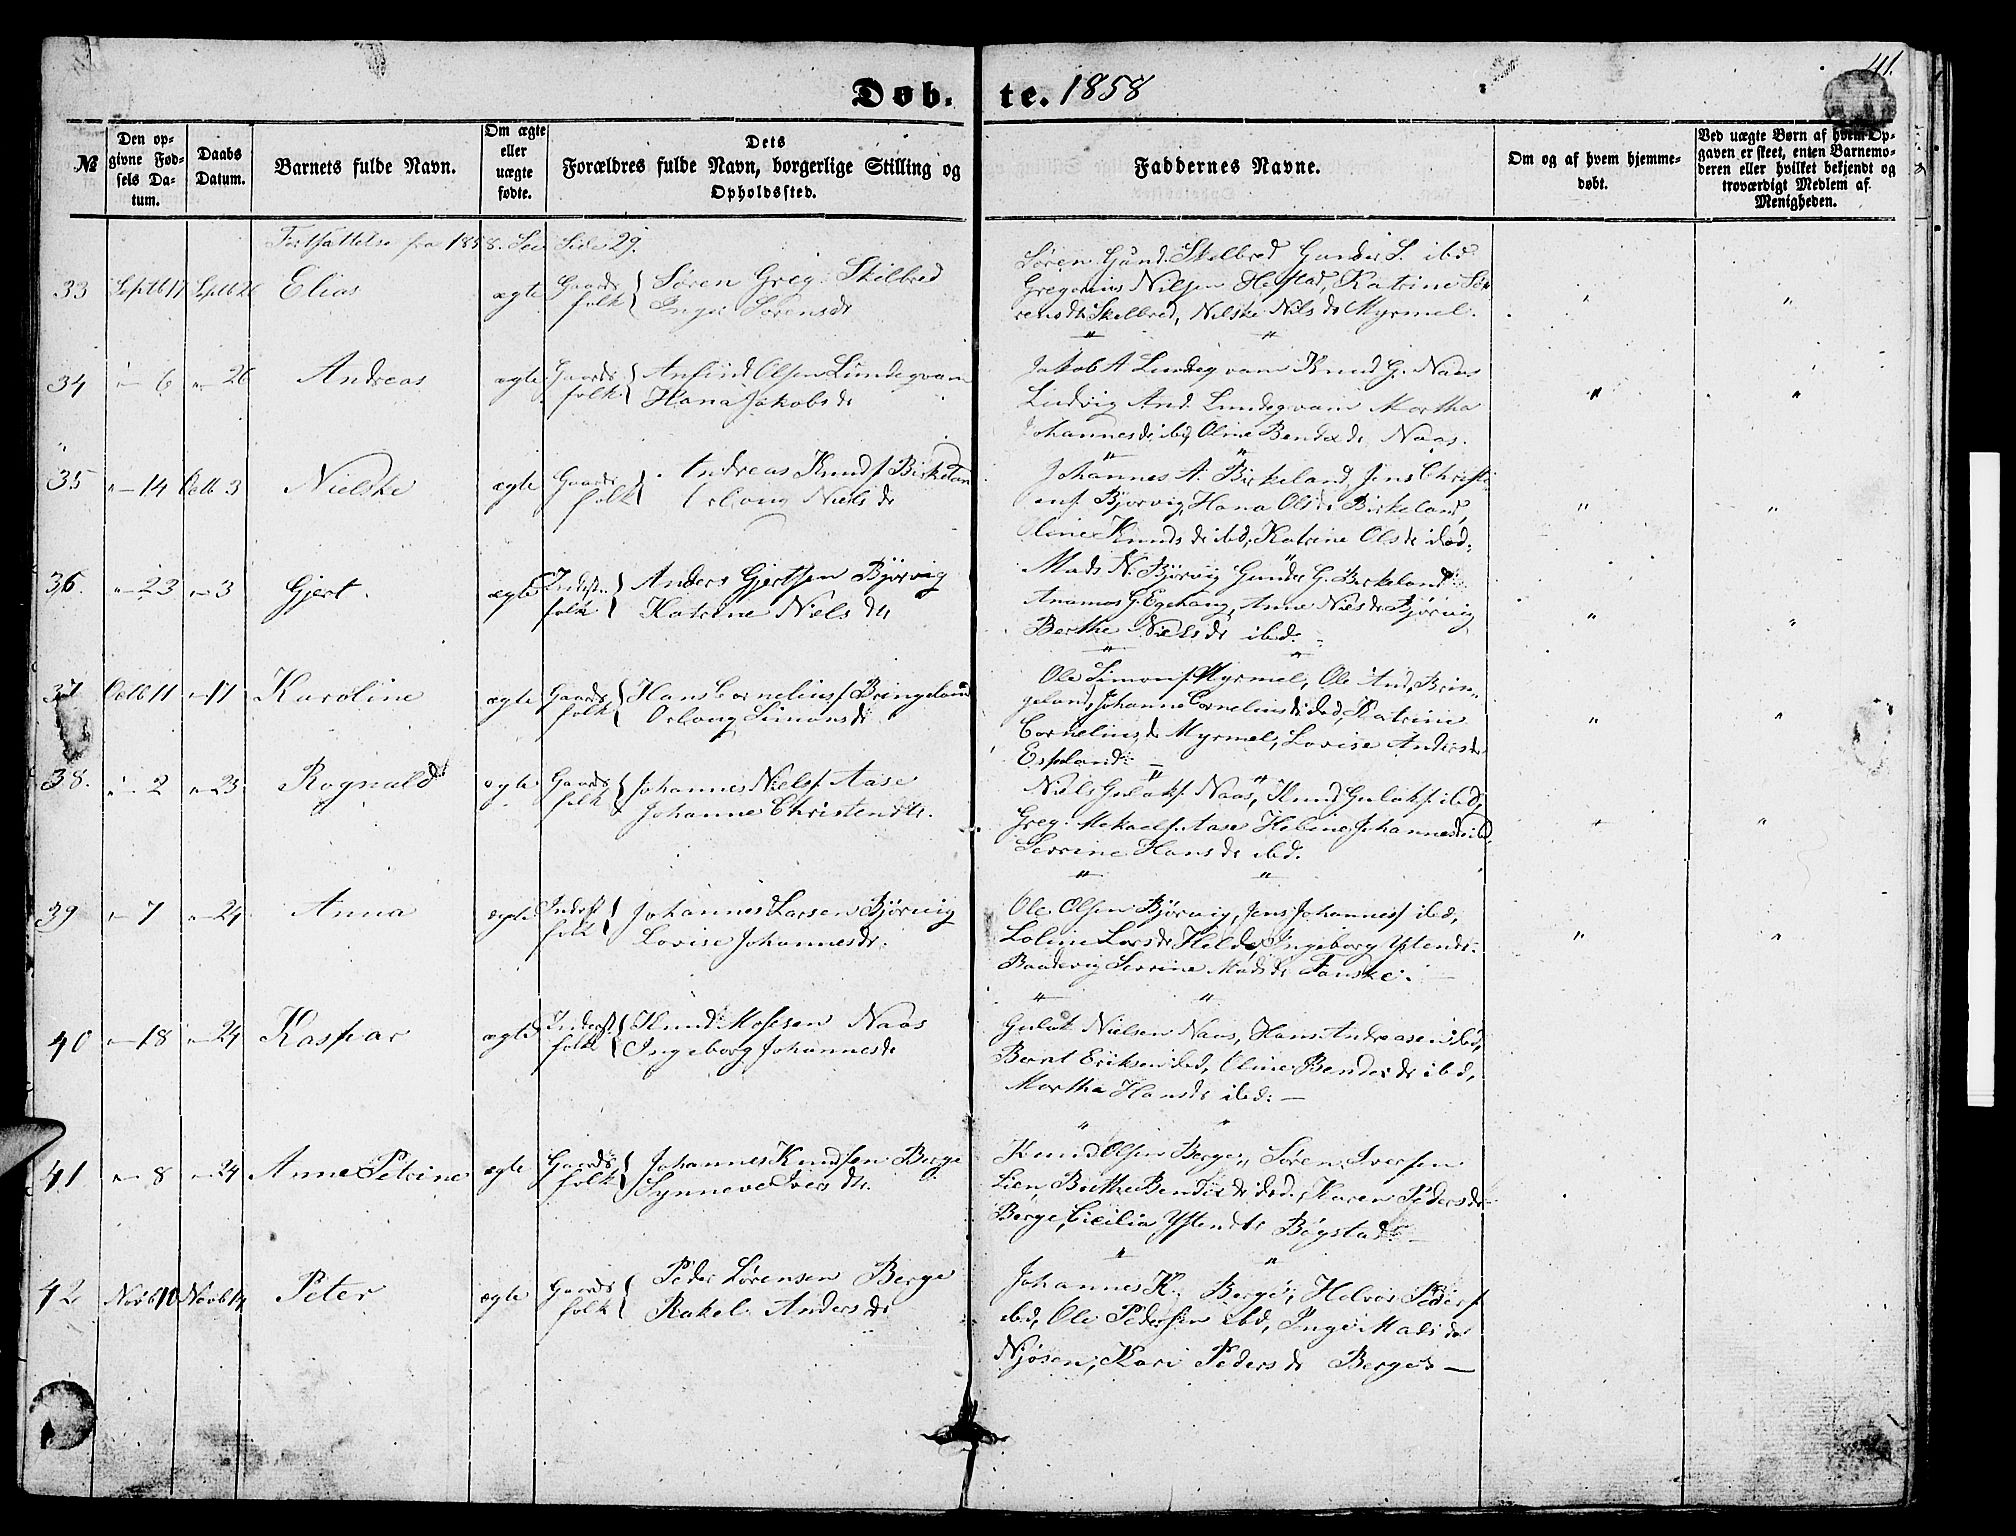 41.
Døb- te. 1858
№
Den op-
givne Fød-
sels Da-
tum.
Daabs
Datum.
Barnets fulde Navn.
Om ægte
eller
uægte
fødte.
Dets
Forældres fulde Navn, borgerlige Stilling og
Opholdssted.
Faddernes Navne.
Om og af hvem hjemme-
døbt.
Ved uægte Børn af hvem Op-
gaven er skeet, enten Barnemo-
deren eller hvilket bekjendt og
troværdigt Medlem af
Menigheden.
Fortsættelse fra 1858. See Side 29.
33 Septb 17 Septb 26 Elias ægte Gaards folk { Søren Greg. Skilbred
Inger Sørensdr
Søren Gund. Skilbred Gunder S. ibd
Gregorius Nilsen Hestad, Katrine Sø-
rensdr Skilbred, Nilske Nilsdr Myrmel.
34 " 6 " 26 Andreas ægte Gaards folk { Anfind Olsen Lundeqvam
Hana Jakobsdr
Jakob A Lundeqvam Knud G. Naas
Ludvig And. Lundeqvam Martha
Johannesdr ibd, Oline Bendixdr Naas.
35 " 14 Octb 3 Nielske ægte Gaards folk { Andreas Knuds. Birkelan
Orlaug Nielsdr
Johannes A. Birkeland, Jens Christi-
ens. Bjørvig, Hana Olsdr Birkeland,
Oline Knudsdr ibd, Katrine Olsdr ibd:
36. " 23 " 3 Gjert. ægte Inderst. folk { Anders Gjertsen Bjørvig
Katrine Nielsdtr
Mads N. Bjørvig Gunder G. Birkeland
Anamas G. Egehaug, Anne Nielsdr Bjørvig
Berthe Nielsdr ibd:
37 Octb 11 " 17 Karoline ægte Gaards folk { Hans Cornelius. Bringeland
Orlaug Simonsdr
Ole Simons. Myrmel, Ole And. Brin-
geland, Johanne Corneliusdr ibd, Katrine
Corneliusdr Myrmel, Lovise Andersdr
Espeland:
38. " 2 " 23 Rognald ægte Gaards folk { Johannes Niels. Aase
Johanne Christendtr.
Niels Gulaks. Naas, Knud Gulaks. ibd,
Greg. Mekaels. Aase Helene Johannesdr ibd,
Serine Hansdr ibd.
39 " 7 " 24 Anna ægte Inderst folk { Johannes Larsen Bjørvig
Lovise Johannesdr.
Ole Olsen Bjørvig, Jens Johannes. ibd,
Loline Larsdr Helde, Ingeborg Ystendr.
Baadevig Serine Madsdr Fanske.
40 " 18 " 24 Kaspar ægte Inderst. folk { Knud Mosesen Naas
Ingeborg Johannesdr
Gulak Nielsen Naas, Hans Andreasen ibd,
Berat Eriksen ibd, Oline Bendixdr ibd,
Martha Hansdr ibd:
41 " 8 " 24 Anne Petrine ægte Gaards folk { Johannes Knudsen Berge
Synneve Iversdtr.
Knud Olsen Berge, Søren Iversen
Lien Berthe Bendixdr ibd, Karen Pedersdr
Berge, Cicilia Ystendtr Bygstad
42 Novb 10 Novb 14 Peter ægte Gaards folk { Peder Sørensen Berge
Rakel Andersdr
Johannes K. Berge, Helvos Peders.
ibd, Ole Pedersen ibd, Inger Madsdr
Njøsen, Kari Pedersdr Berge